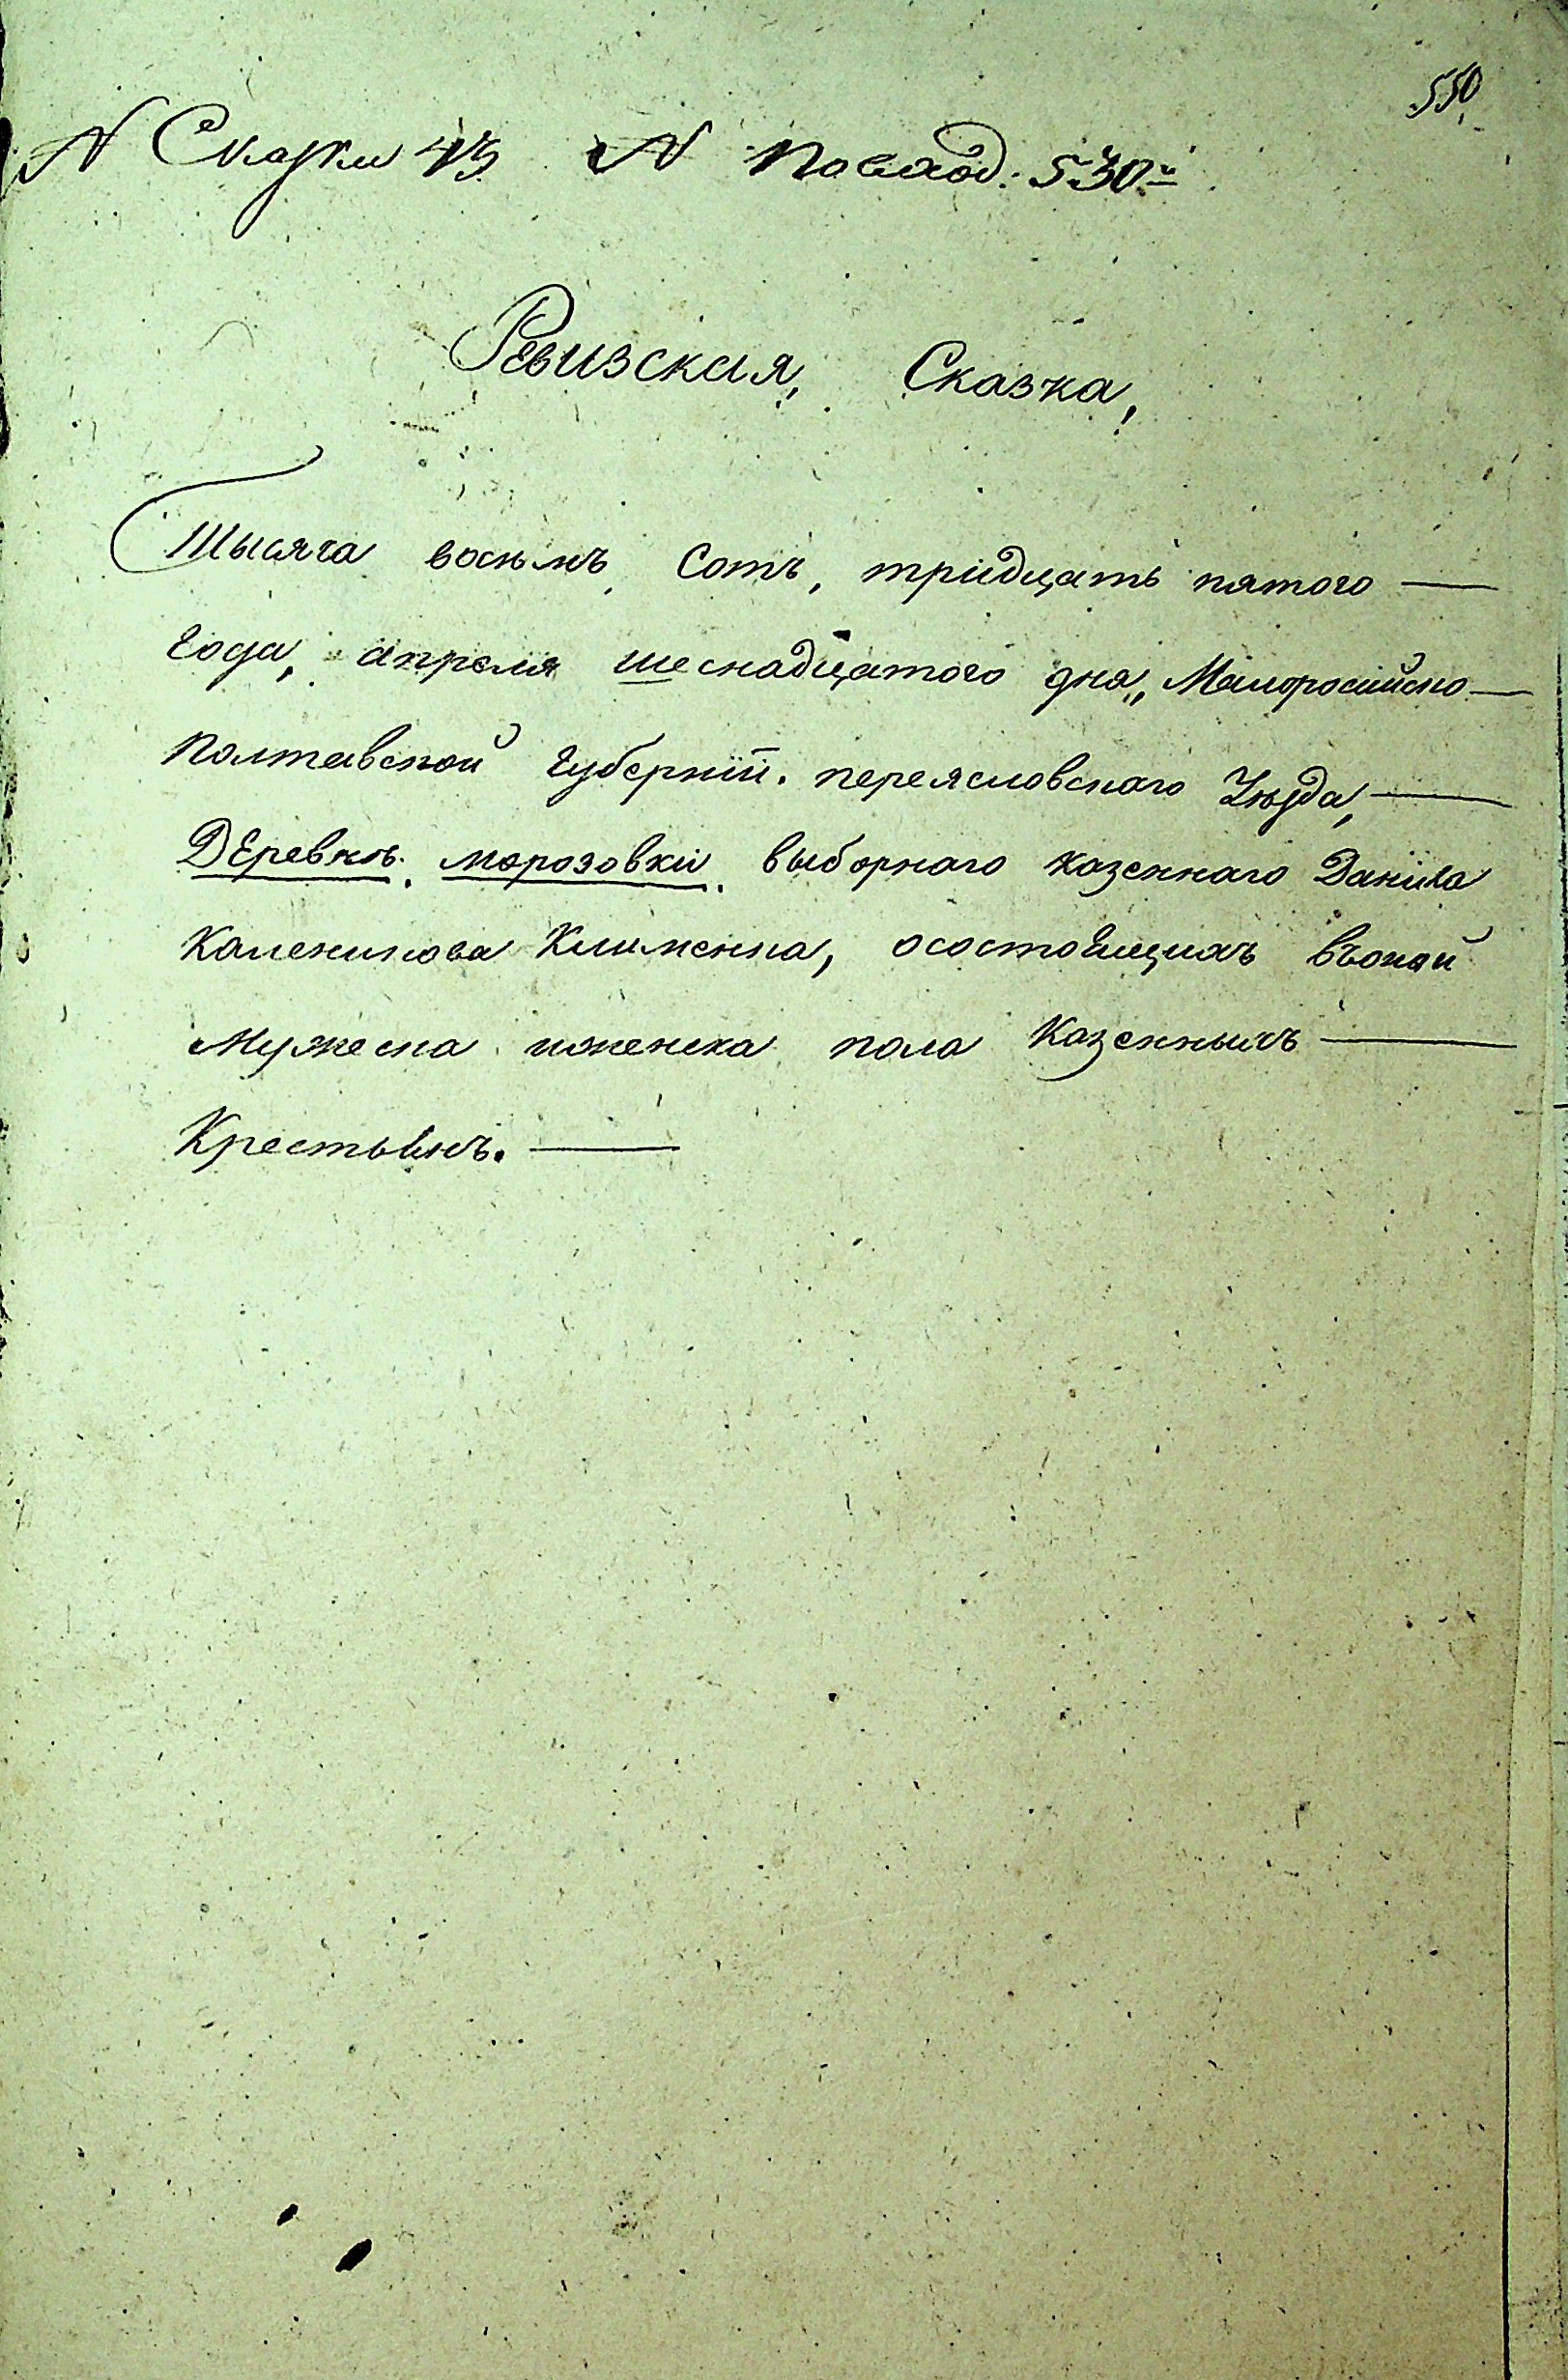 550
N Сказки 43 N По всход: 530й
Ревизская, Сказка,
Тысяча восьмъ, Сотъ, тридцать пятого —
Года, апреля шеснадцатого дня,, Малоросийско —
полтавской Губернїи. переясловскаго Уѣзда, —
ДЕревнѣ. морозовки. выборнаго казеннаго Данила
Каленикова Клименка, осостоящихъ въоной
Мужеска иженска пола Казенныхъ —
Крестьянъ. —